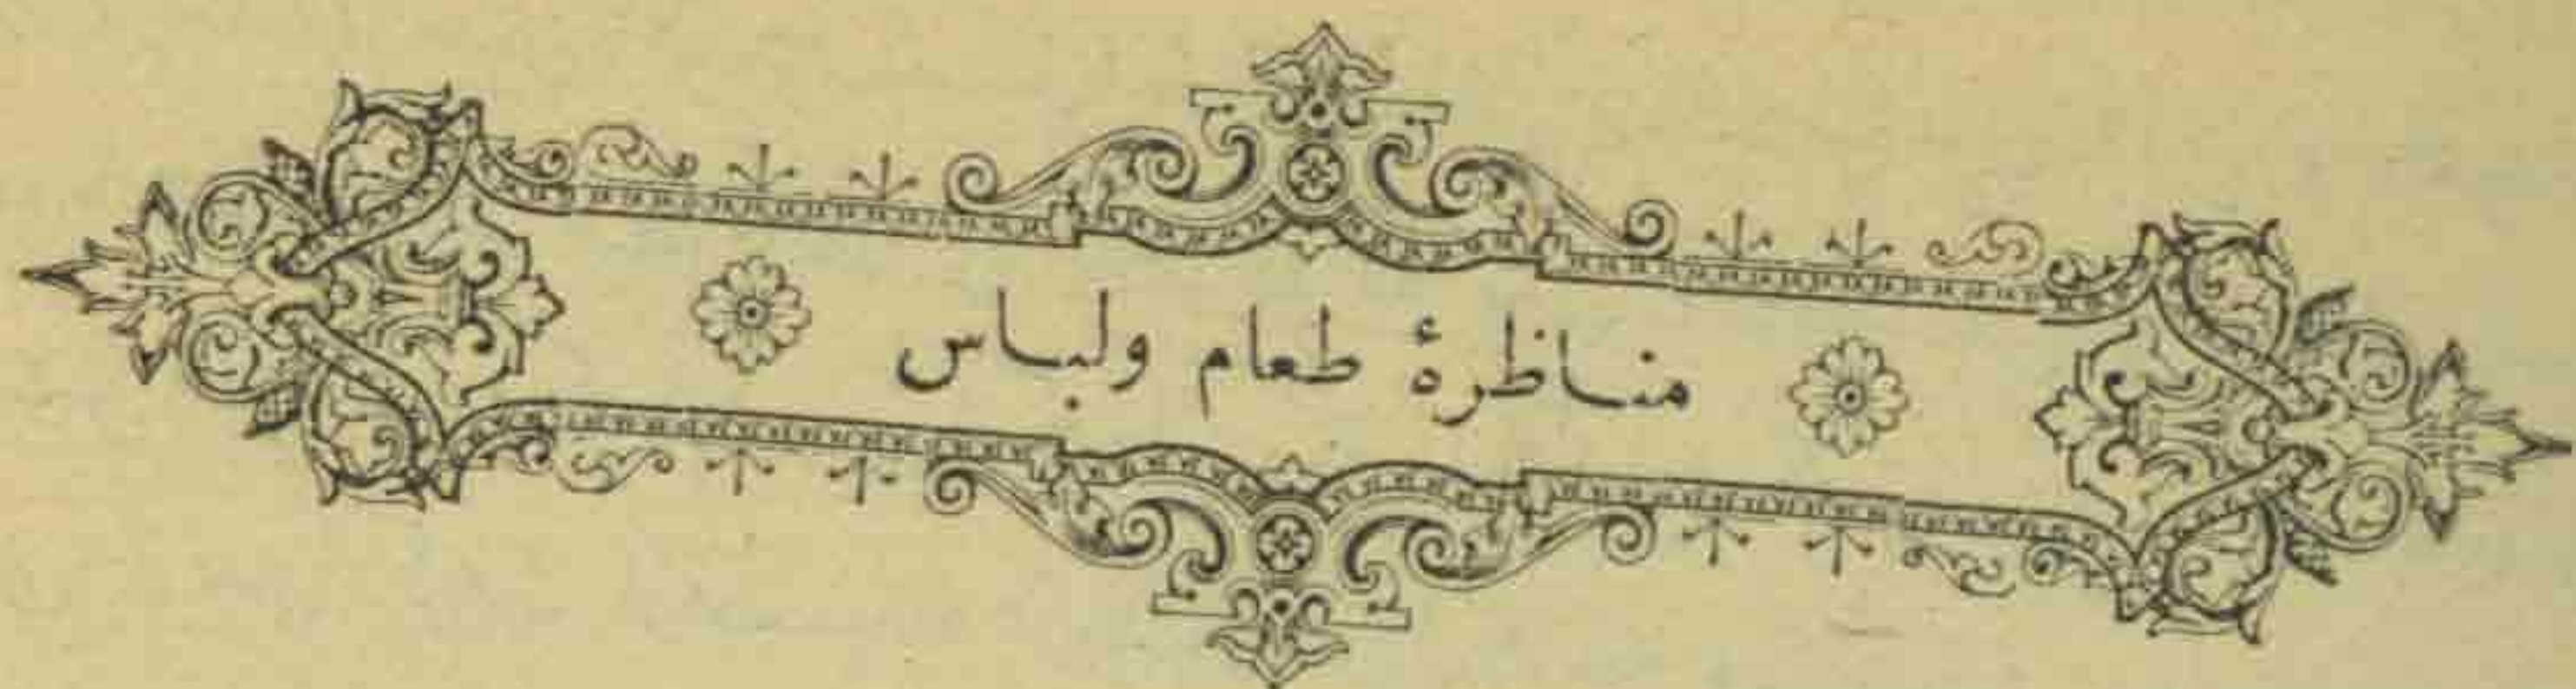 مناظرهٔ طعام ولباس